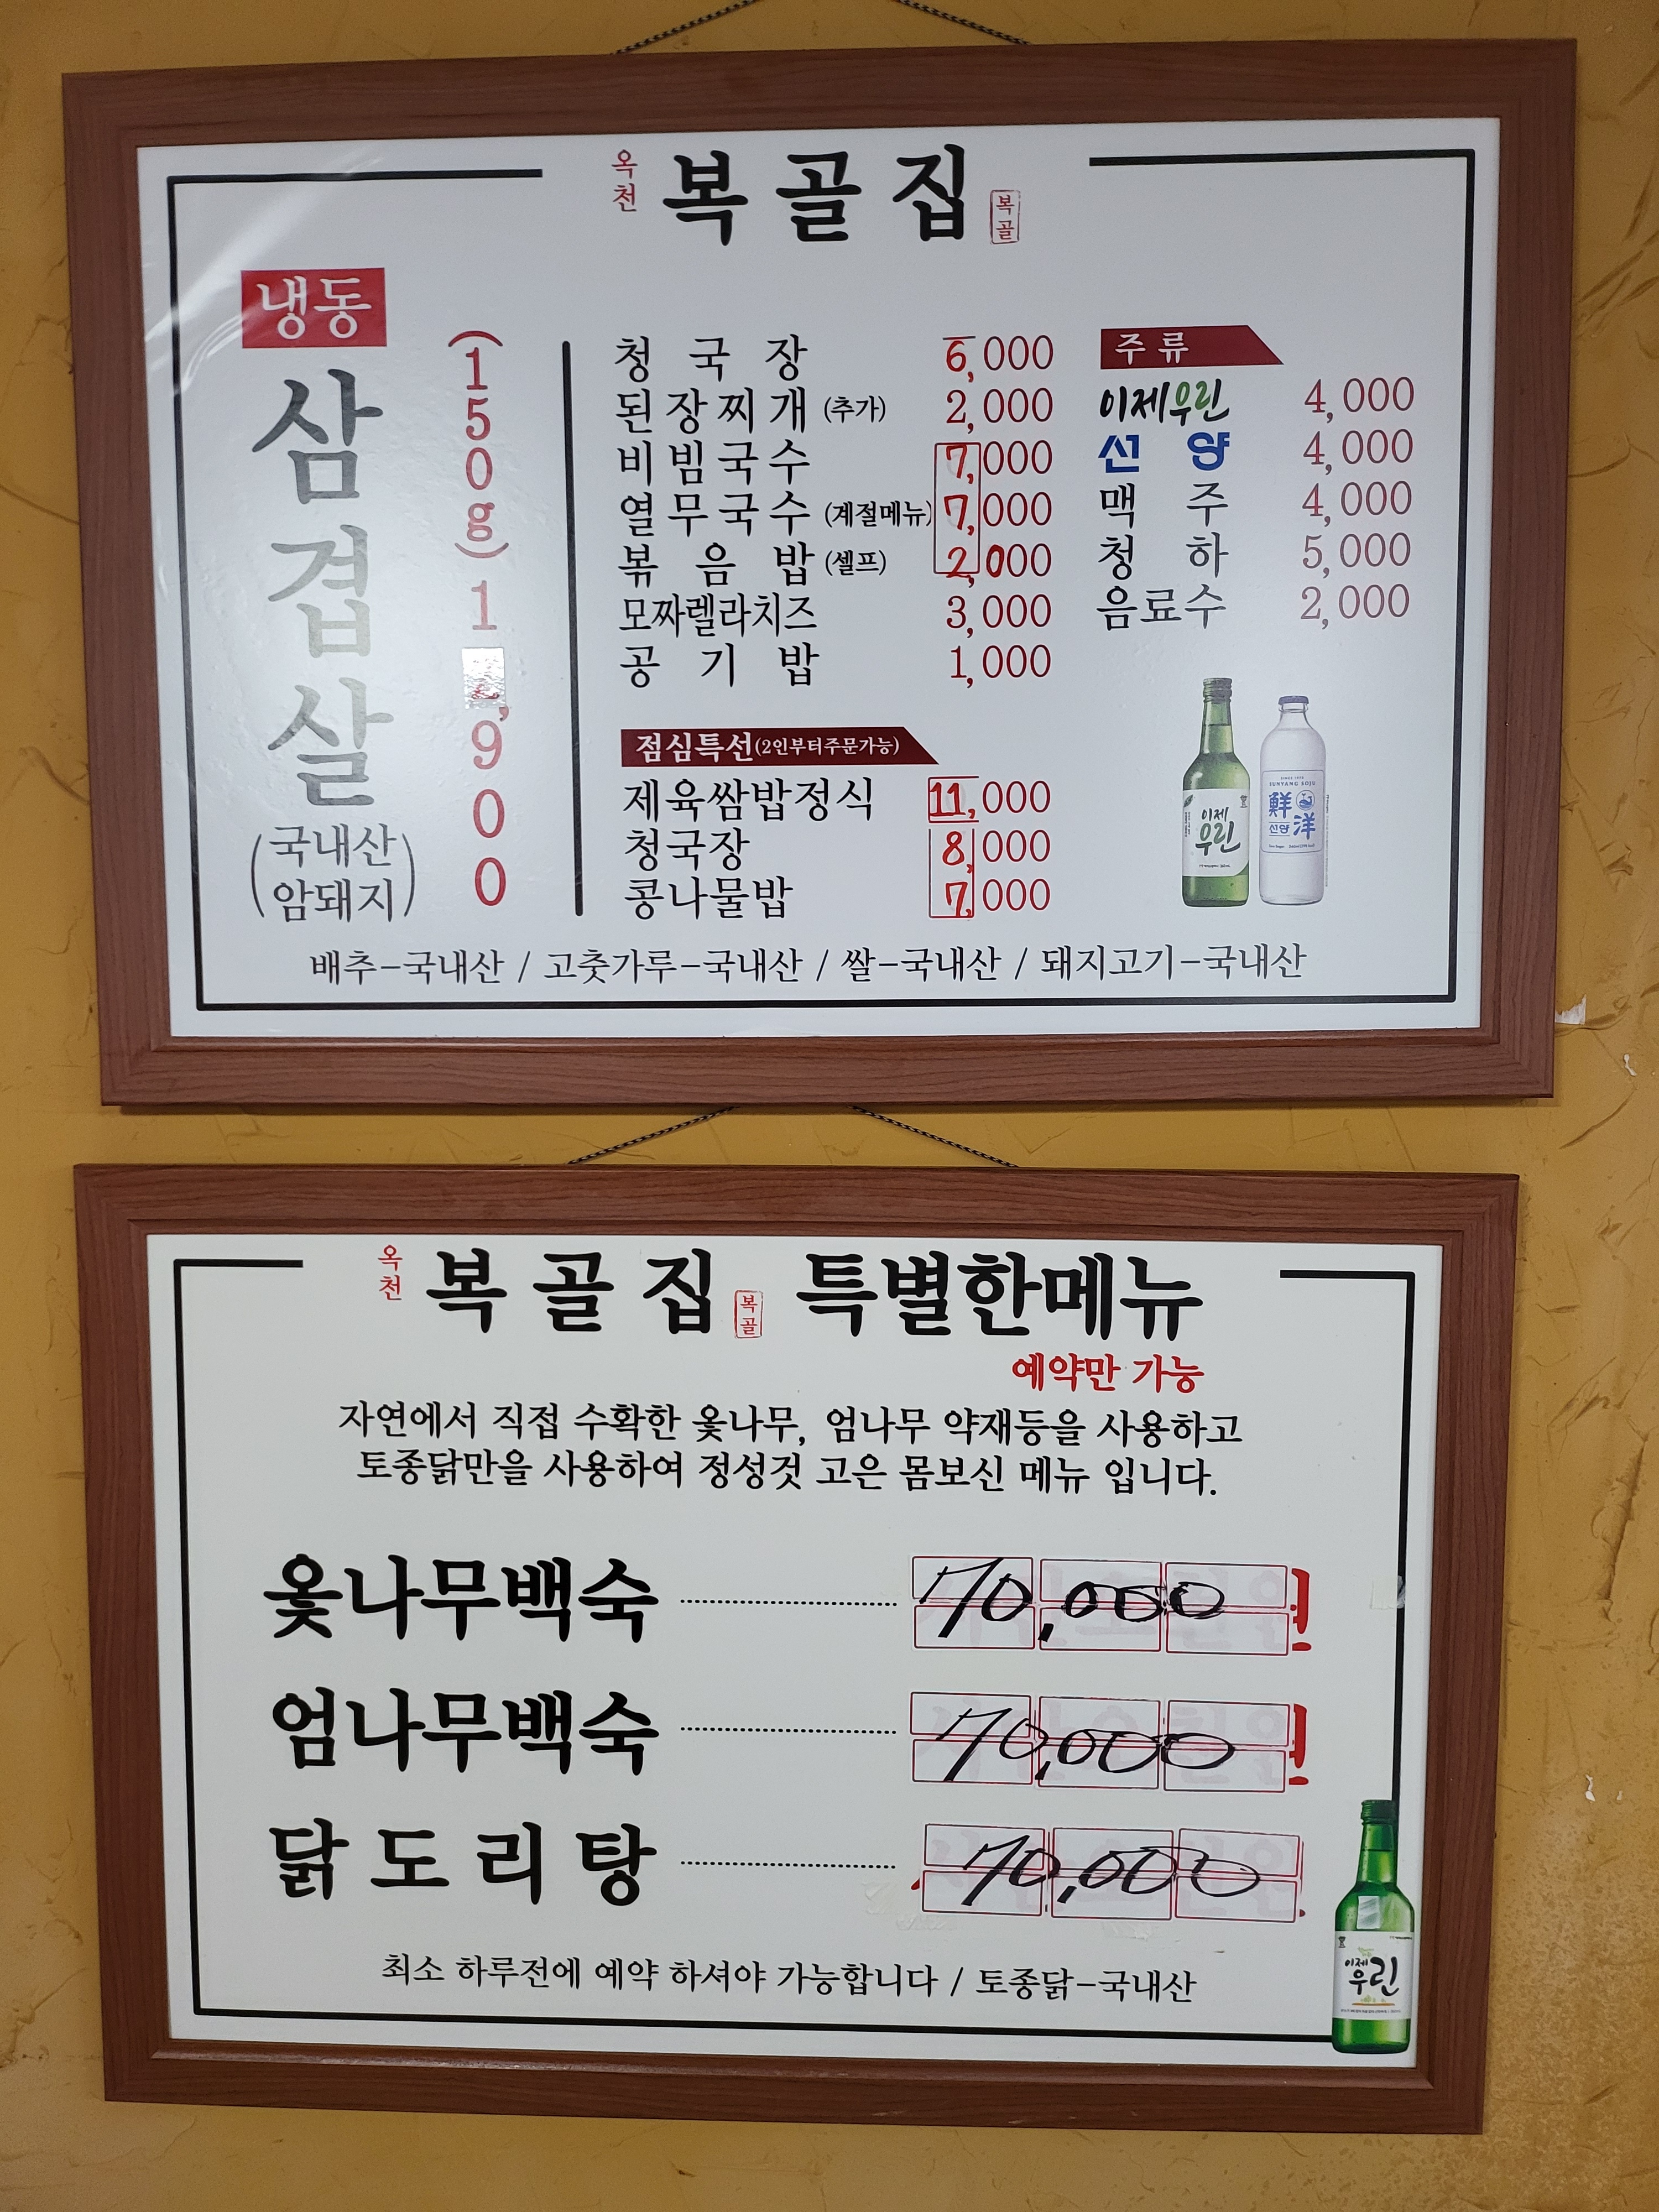 옥천 복골집 복골
냉동
삼겹살
(국내산 암돼지)
(150g) 1 ,900
청국장 6,000
된장찌개 (추가) 2,000
비빔국수 7,000
열무국수 (계절메뉴) 7,000
볶음밥 (셀프) 2,000
모짜렐라치즈 3,000
공기밥 1,000
점심특선(2인부터주문가능)
제육쌈밥정식 11,000
청국장 8,000
콩나물밥 7,000
주류
이제우린 4,000
선양 4,000
맥주 4,000
청하 5,000
음료수 2,000
이제
우린
SUNYANG SOJU
鮮
선양 洋
배추-국내산 / 고춧가루-국내산 / 쌀-국내산 / 돼지고기-국내산
옥천 복골집 복골 특별한메뉴
예약만 가능
자연에서 직접 수확한 옻나무, 엄나무 약재등을 사용하고
토종닭만을 사용하여 정성것 고은 몸보신 메뉴 입니다.
옻나무백숙 70,000
엄나무백숙 70,000
닭도리탕 70,000
최소 하루전에 예약 하셔야 가능합니다 / 토종닭-국내산
이제
우린